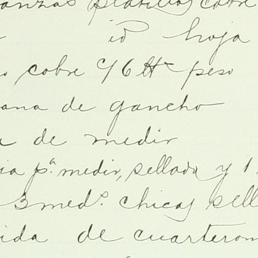 anzas platillos cobre
id hoja
cobre y 6 lbs peso
ana de gancho
de medir
ia pª. medir, sellada y 1
3 medˢ. chicas sell
ida de cuarteron